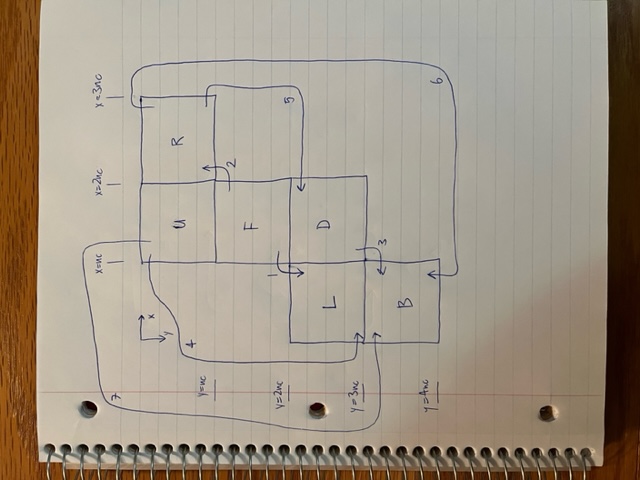 x=nc x=2nc x=3nc
7
x
y
4
U R
y=nc
F
2
1
y=2nc
5
L D
y=3nc
3
B
y=4nc
6